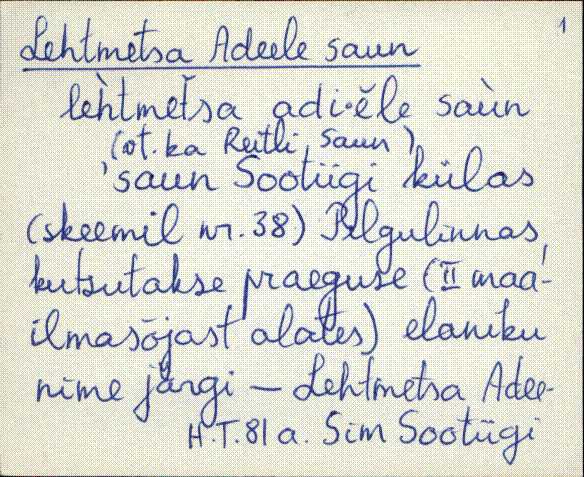 1
Lehtmetsa Adeele saun
lèhtmet̆sa adi·ĕle saùn
(vt. ka Reitli saun)
'saun Sootiigi külas
(skeemil nr. 38) Pilgulinnas,
kutsutakse praeguse (II maa-
ilmasõjast alates) elaniku
nime järgi — Lehtmetsa Adee-
H.T. 81 a. Sim Sootiigi